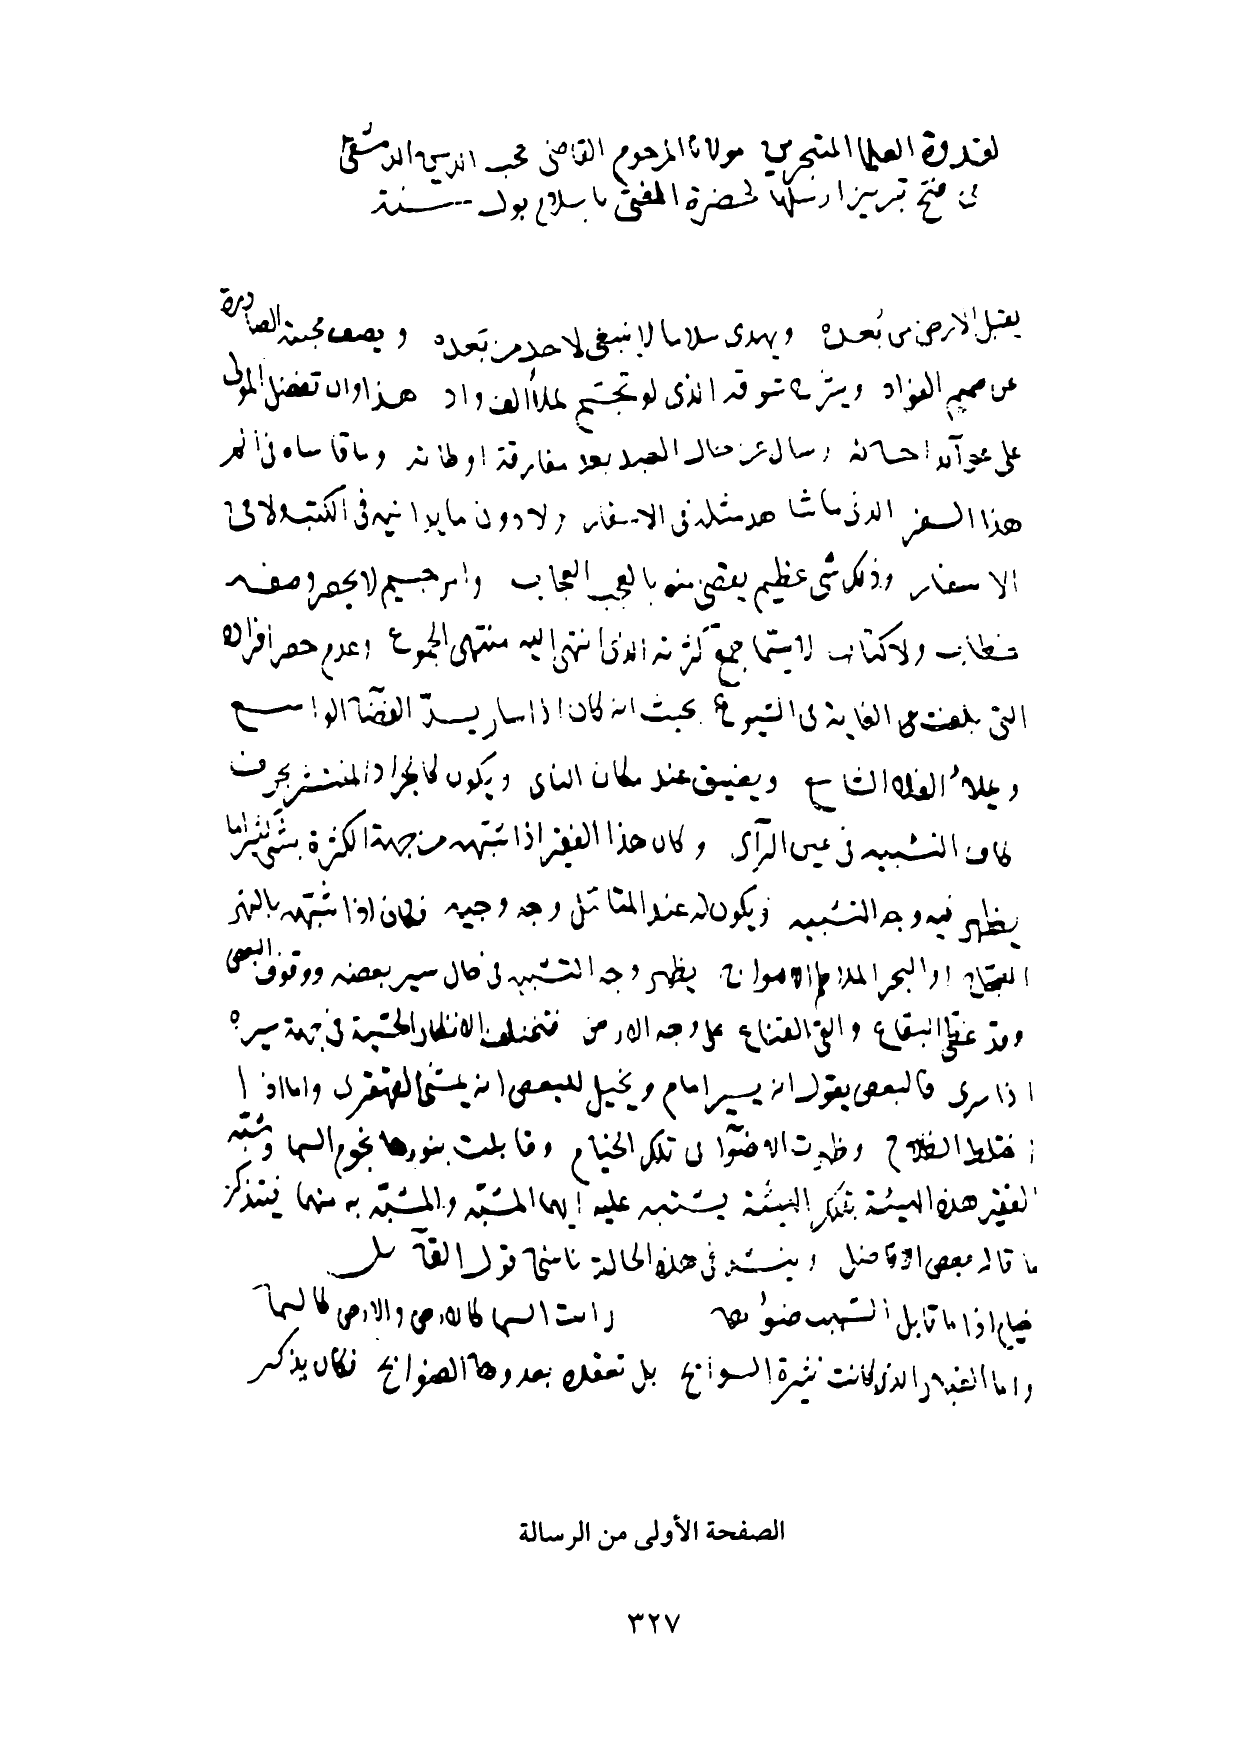 لقدوة العلما المتبحرين مولانا المرحوم القاضى محب الدين الدمشقى
فى فتح تبريز ارسلها لحضرة المفتى باسلام بول سنة
يقبل الارض من بُعده ويهدى سلاما لا ينبغى لاحد من بَعده ويصف محبته الصادرة
عن صميم الفؤاد ويشرح شوقه الذى لو تجسّم لملأ الف واد هذا وان تفضل المولى
على عوآئد احسانه وسال عن حال العبد بعد مفارقة اوطانه وما قاساه فى الم
هذا السفر الذى ما شاهد مثله فى الاسفار ولا دون ما يدانيه فى الكتب ولا فى
الاسفار وذلك شى عظيم يقضى منه بالعجب العجاب وامر جسيم لا يحصر وصفه
خطاب ولا كتاب لا سيّما جمع كثرته الذى انتهى اليه منتهى الجموع وعدم حصر افراده
التى بلغت الغاية فى الشيوع بحيث انه كان اذا سار يسدّ الفضآ الواسع
ويملاء الفلاه الشاسع ويضيق عند مكان الناى ويكون كالجراد المنتشر بحرف
كاف التشبيه فى عين الرآى وكان هذا الفقير اذا شبّهه من جهة الكثرة بشى كثيرا ما
يظهر فيه وجه التشبيه ويكون له عند القائل وجه وجيه فكان اذا شبّهه بالنهر
العجاج او البحر المتلاطم الامواج يظهر وجه التشبيه فى حال سير بعضه ووقوف البعض
وقد غطى البقاع والقى القناع على وجه الارض فتختلف الانظار الحسّية فى جهة سيره
اذا سرى فالبعض يقول انه يسير امام ويخيل للبعض انه يمشى القهقرى واما اذا
اختلط الظلام وظهرت الاضوآ فى تلك الخيام وقابلت بنورها نجوم السما وشبّه
الفقير هذه الهيئة بتلك الهيئة يشتبه عليه ايهما المشبّه والمشبّه به منهما فيتذكر
ما قاله بعض الافاضل وينشد فى هذه الحالة ناسى قول القآئل
خيام اذا ما قابل الشهب ضوؤها رايت السما كالارض والارض كالسما
واما الغبار الذى كانت تثيره السوابح بل تعقده بعدوها الضوابح فكان يذكر
الصفحة الأولى من الرسالة
٣٢٧